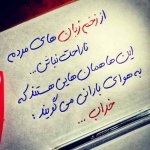 از زخم زبان های مردم
ناراحت نباش...
این ها همان هایی هستند که
به هوای بارانی می گویند :
خراب...